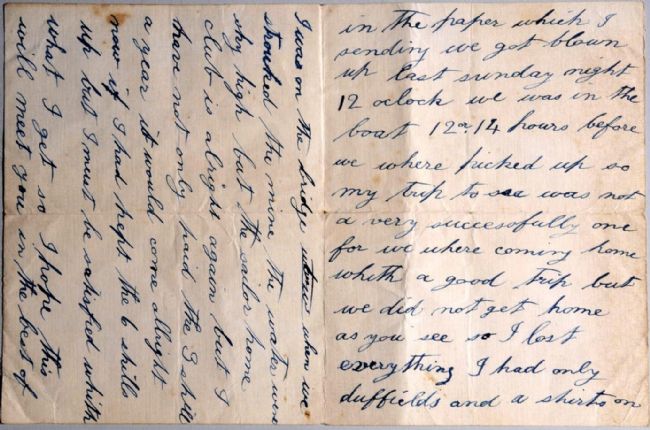 in the paper which I
sending we got blown
up last sunday night
12 oclock we was in the
boat 12 or 14 hours before
we where picked up so
my trip to sea was not
a very succesofully one
for we where coming home
whith a good trip but
we did not get home
as you see so I lost
everything I had only
duffields and a shirts on
I was on the bridge when we
shouked the mine the water wen
sky high but the sailor home
club is alright again but I
have not only paid the 3 shill
a year it would come allright
now if I had kept the 6 shills
up but I must be satisfied whith
what I get so I hope this
will meet you in the best of